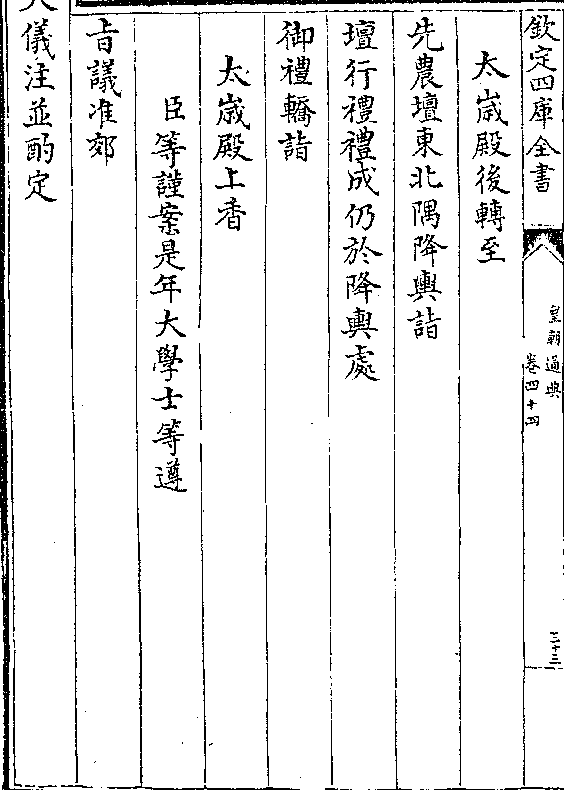 欽定四庫全書
皇朝通典
卷四十四
三十三
太歲殿後轉至
先農壇東北隅降輿詣
壇行禮禮成仍於降輿處
御禮轎詣
太歲殿上香
臣等謹案是年大學士等遵
旨議准郊
天儀注並酌定